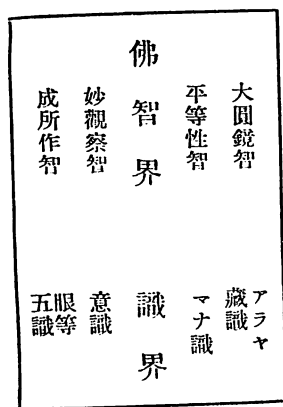 大圓鏡智 アラヤ
藏識
平等性智 マナ識
佛智界 識界
妙觀察智 意識
成所作智 眼等
五識